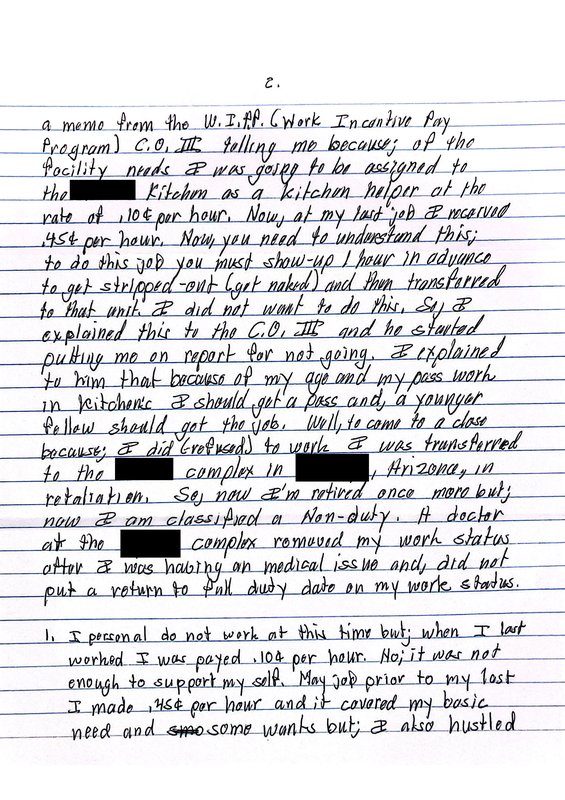 2.
a memo from the W.I.P.P. (Work Incantive Pay
Program) C.O. III telling me because; of the
facility needs I was going to be assigned to
the Kitchen as a kitchen helper at the
rate of .10¢ per hour. Now, at my last job I received
.45¢ per hour. Now, you need to understand this;
to do this job you must show-up 1 hour in advance
to get stripped-out (get naked) and then transferred
to that unit. I did not want to do this. So, I
explained this to the C.O. III and he started
putting me on report for not going. I explained
to him that because of my age and my pass work
in kitchen's I should get a pass and, a younger
fellow should get the job. Well, to come to a close
because; I did (refused) to work I was transferred
to the complex in , Arizona, in
retaliation. So, now I'm retired once more but;
now I am classified a Non-duty. A doctor
at the complex removed my work status
after I was having an medical issue and, did not
put a return to full duty date on my work status.
1. I personal do not work at this time but; when I last
worked I was payed .10¢ per hour. No; it was not
enough to support my self. May job prior to my last
I made .45¢ per hour and it covered my basic
need and smo some wants but; I also hustled